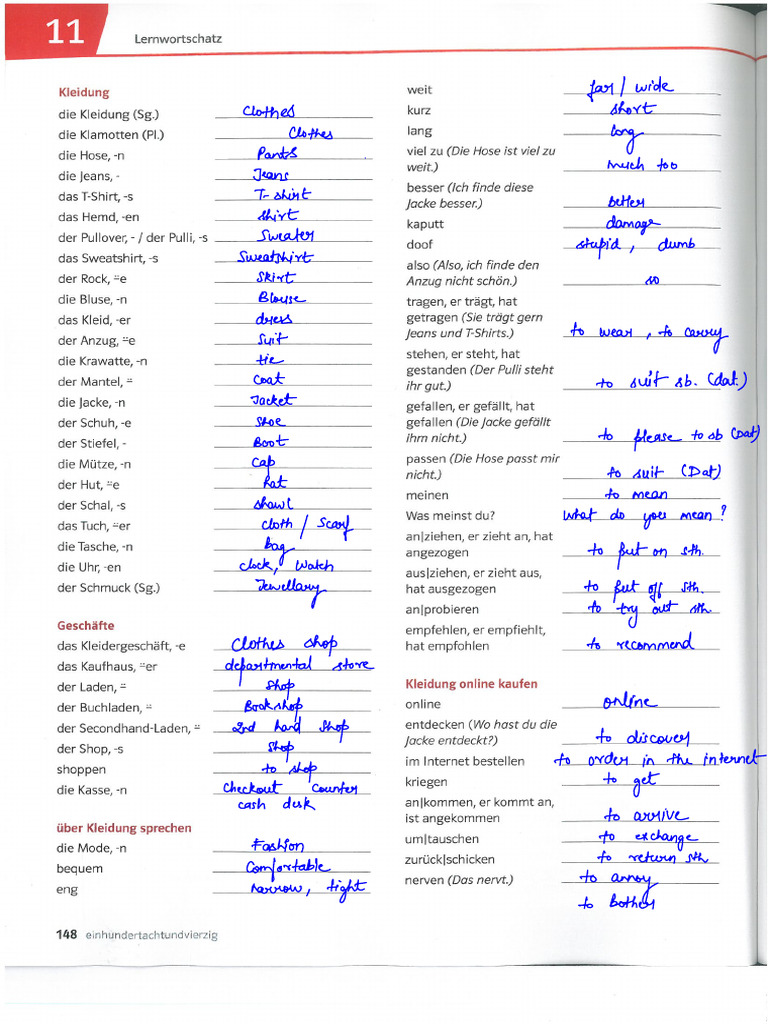 11 Lernwortschatz
Kleidung
die Kleidung (Sg.) Clothes
die Klamotten (Pl.) Clothes
die Hose, -n Pants
die Jeans, - Jeans
das T-Shirt, -s T-shirt
das Hemd, -en shirt
der Pullover, - / der Pulli, -s Sweater
das Sweatshirt, -s Sweatshirt
der Rock, ¨-e Skirt
die Bluse, -n Blouse
das Kleid, -er dress
der Anzug, ¨-e Suit
die Krawatte, -n tie
der Mantel, ¨- Coat
die Jacke, -n Jacket
der Schuh, -e Shoe
der Stiefel, - Boot
die Mütze, -n Cap
der Hut, ¨-e Hat
der Schal, -s shawl
das Tuch, ¨-er cloth / Scarf
die Tasche, -n Bag
die Uhr, -en clock, Watch
der Schmuck (Sg.) Jewellary
Geschäfte
das Kleidergeschäft, -e Clothes shop
das Kaufhaus, ¨-er departmental store
der Laden, ¨- Shop
der Buchladen, ¨- Bookshop
der Secondhand-Laden, ¨- 2nd hand shop
der Shop, -s Shop
shoppen to shop
die Kasse, -n Checkout counter
cash desk
über Kleidung sprechen
die Mode, -n Fashion
bequem Comfortable
eng narrow, tight
148 einhundertachtundvierzig
weit far / wide
kurz short
lang long
viel zu (Die Hose ist viel zu
weit.) much too
besser (Ich finde diese
Jacke besser.) better
kaputt damage
doof stupid, dumb
also (Also, ich finde den
Anzug nicht schön.) so
tragen, er trägt, hat
getragen (Sie trägt gern
Jeans und T-Shirts.) to wear, to carry
stehen, er steht, hat
gestanden (Der Pulli steht
ihr gut.) to suit sb. (dat.)
gefallen, er gefällt, hat
gefallen (Die Jacke gefällt
ihm nicht.) to please to sb (Dat)
passen (Die Hose passt mir
nicht.) to suit (Dat)
meinen to mean
Was meinst du? What do you mean?
an|ziehen, er zieht an, hat
angezogen to put on sth.
aus|ziehen, er zieht aus,
hat ausgezogen to put off sth.
an|probieren to try out sth
empfehlen, er empfiehlt,
hat empfohlen to recommend
Kleidung online kaufen
online online
entdecken (Wo hast du die
Jacke entdeckt?) to discover
im Internet bestellen to order in the internet
kriegen to get
an|kommen, er kommt an,
ist angekommen to arrive
um|tauschen to exchange
zurück|schicken to return sth
nerven (Das nervt.) to annoy
to bother